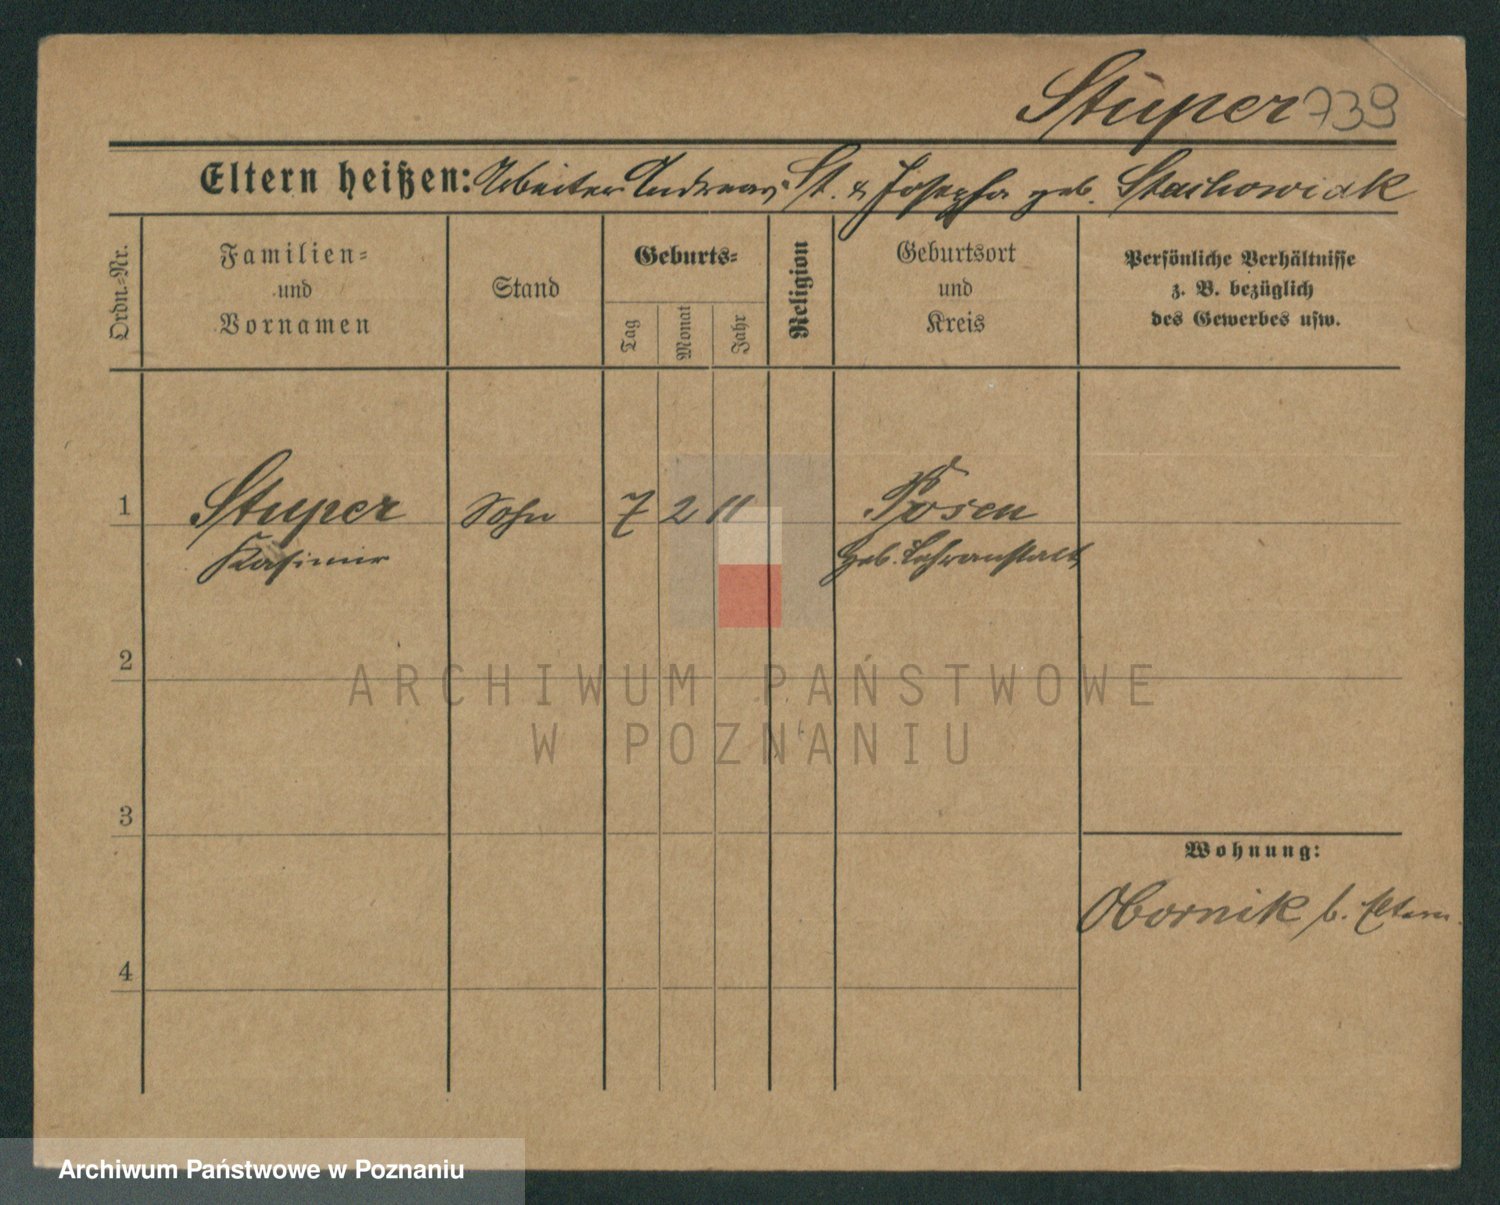 Stuper 739
Eltern heißen: Arbeiter Andreas St. & Josepha geb. Stachowiak
Ordn.=Nr.
Familien=
und
Vornamen
Stand
Geburts=
Tag
Monat
Jahr
Religion
Geburtsort
und
Kreis
Persönliche Verhältnisse
z. B. bezüglich
des Gewerbes usw.
1 Stuper Sohn 7 2 11 Posen
Kasimir Geb. Lehranstalt
2
ARCHIWUM PAŃSTWOWE
W POZNANIU
3
Wohnung:
Obornik b. Eltern.
4
Archiwum Państwowe w Poznaniu